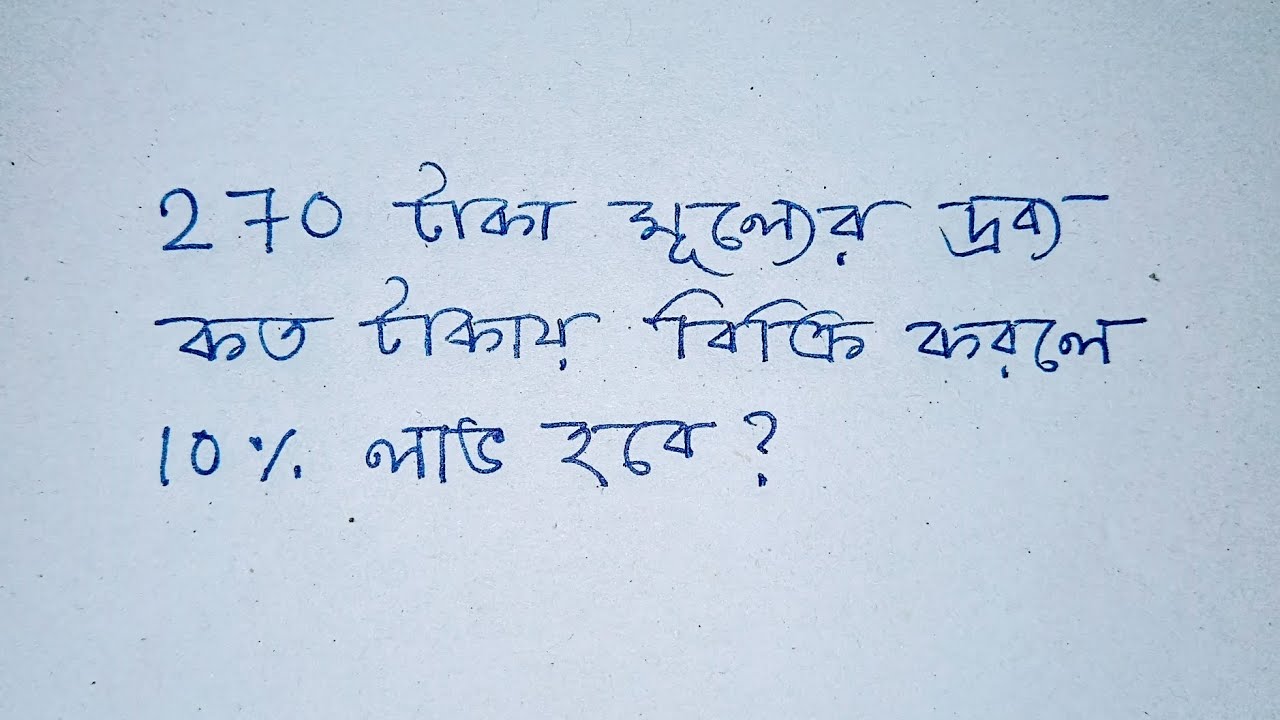 270 টাকা মূল্যের দ্রব্য
কত টাকায় বিক্রি করলে
10% লাভ হবে?